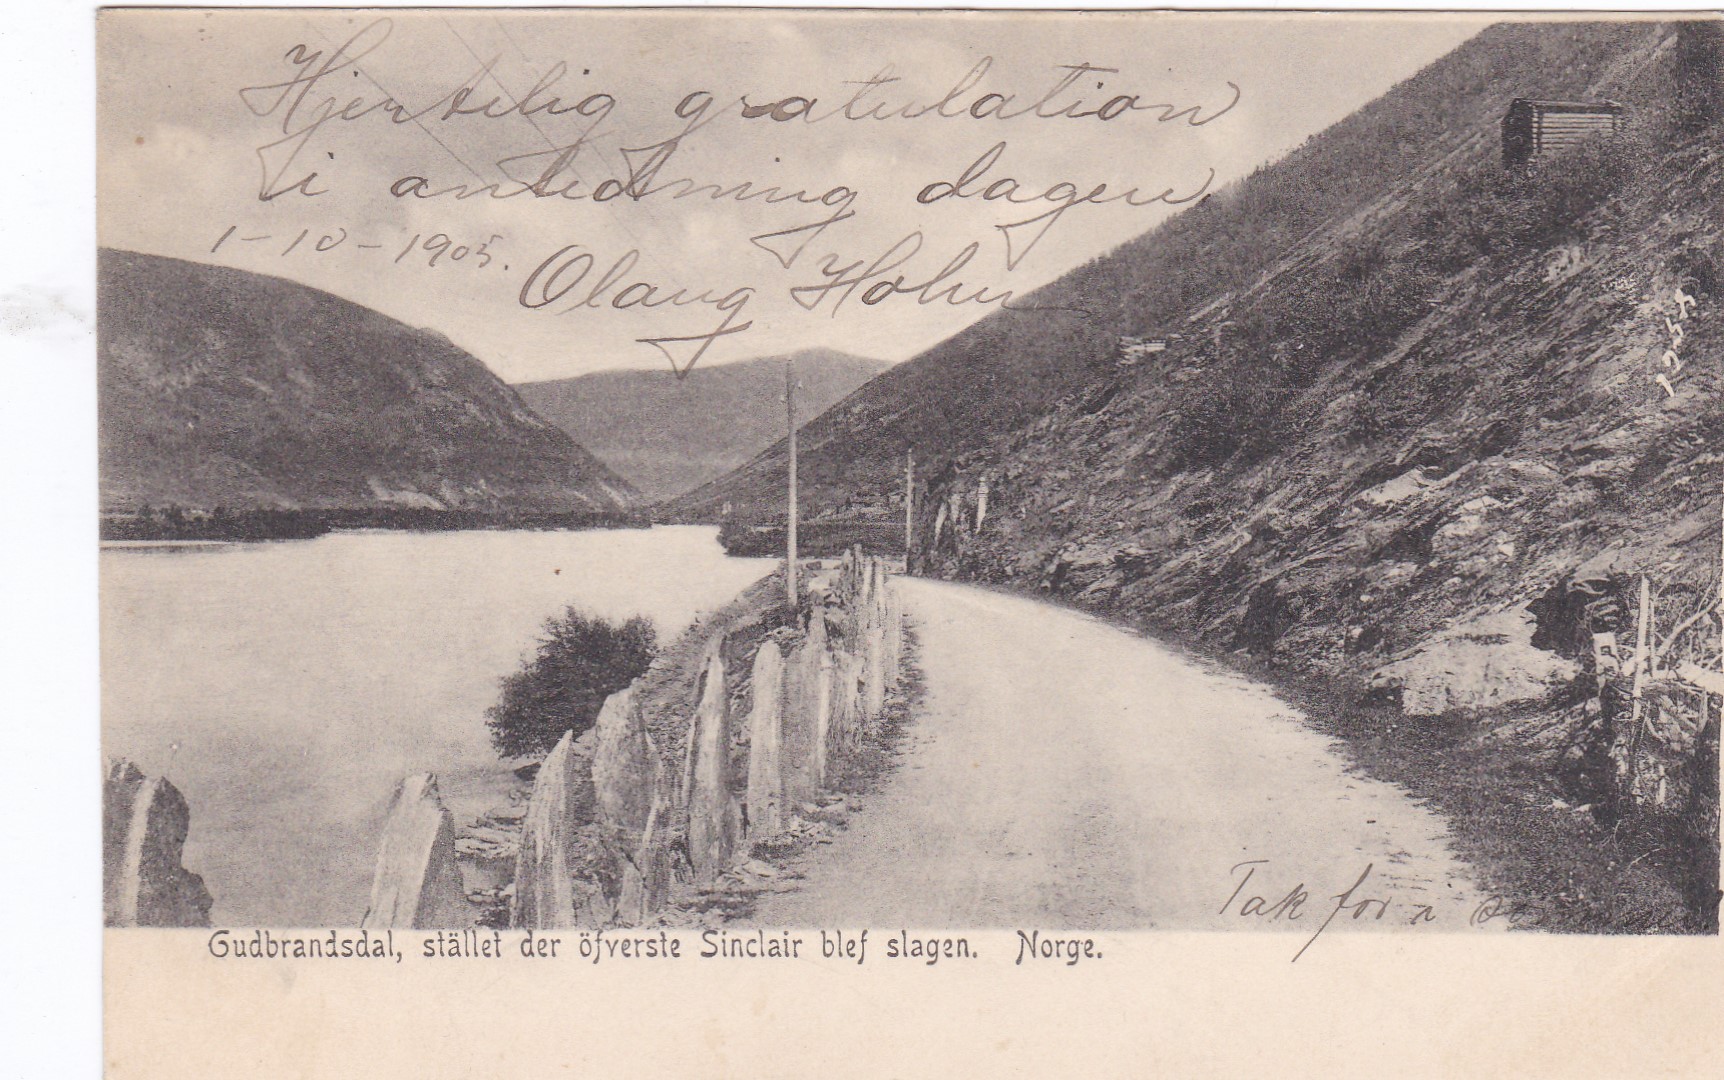 Hjertelig gratulation
i anledning dagen
1-10-1905.
Olaug Holm
1257
Tak for
Gudbrandsdal, stället der öfverste Sinclair blef slagen. Norge.